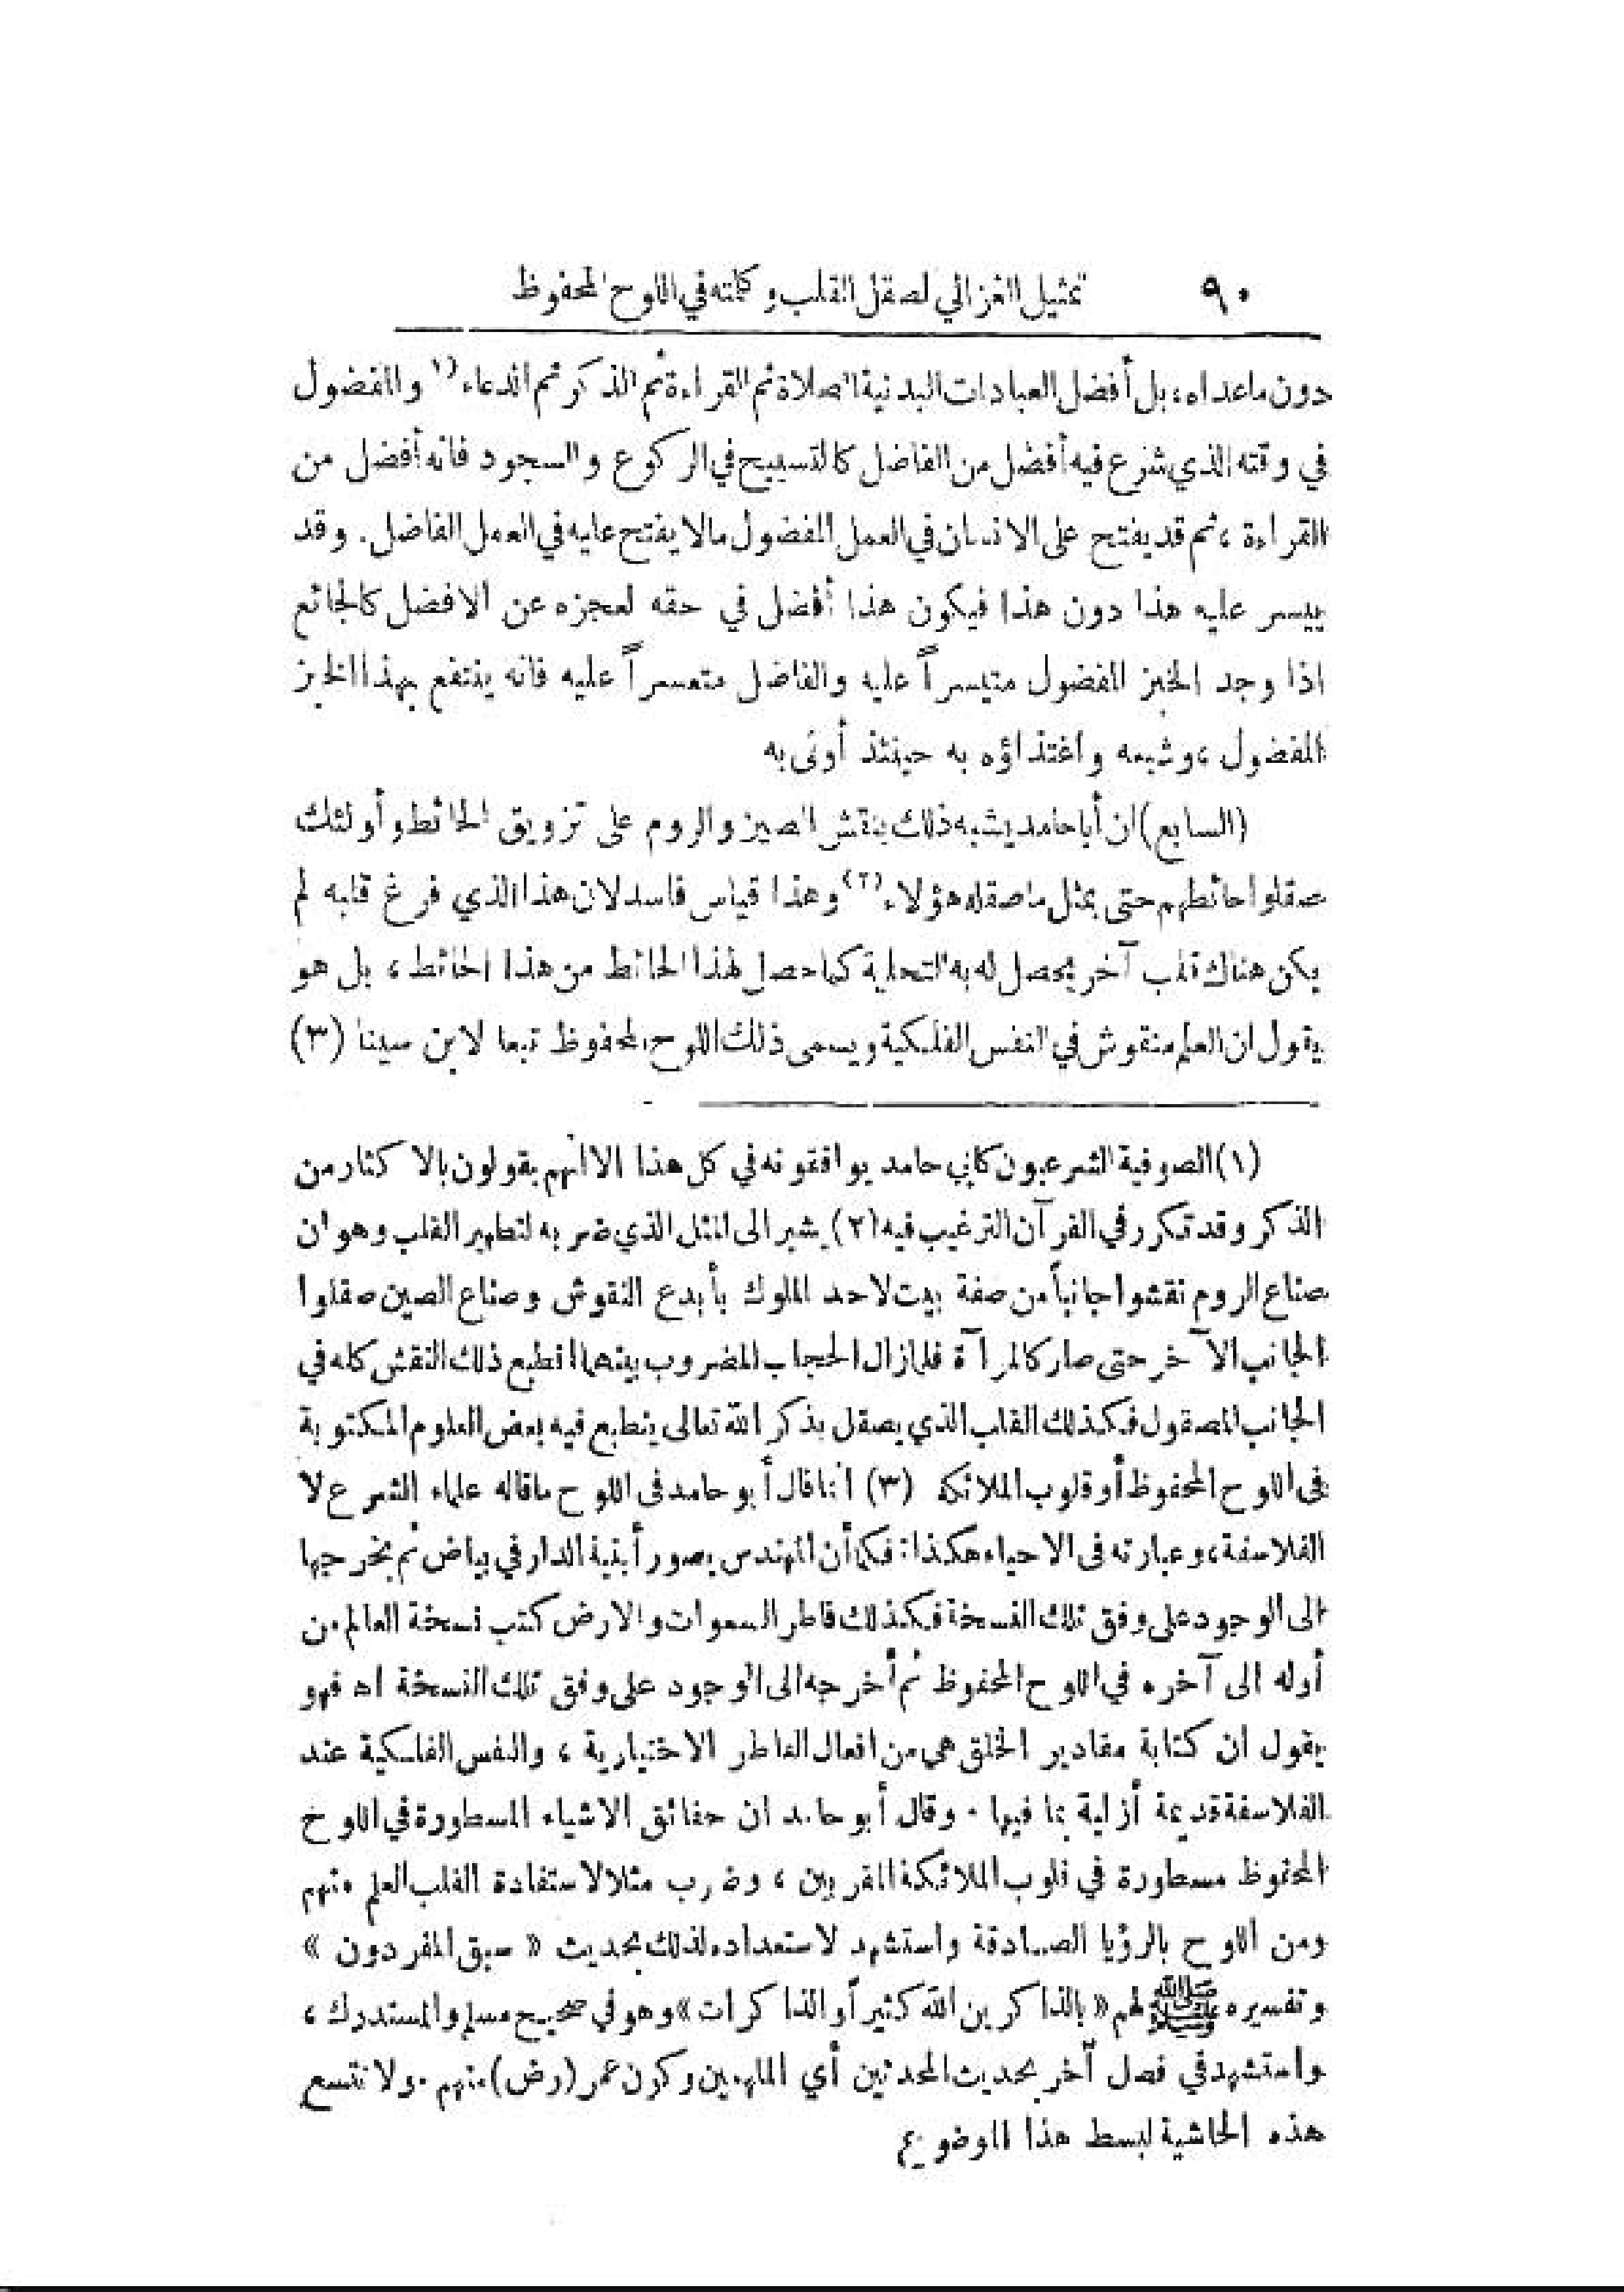 ٩٠ تمثيل الغزالي لصقل القلب وكلمته في اللوح المحفوظ
دون ماعداه، بل أفضل العبادات البدنية الصلاة ثم القراءة ثم الذكر ثم الدعاء (١) والمفضول
في وقته الذي شرع فيه أفضل من الفاضل كالتسبيح في الركوع والسجود فانه أفضل من
القراءة، ثم قد يفتح على الانسان في العمل المفضول مالا يفتح عليه في العمل الفاضل. وقد
ييسر عليه هذا دون هذا فيكون هذا أفضل في حقه لعجزه عن الافضل كالجائع
اذا وجد الخبز المفضول متيسراً عليه والفاضل متعسراً عليه فانه ينتفع بهذا الخبز
المفضول، وشبعه واغتذاؤه به حينئذ أولى به
(السابع) ان أبا حامد يشبه ذلك بنقش الصين والروم على تزويق الحائط وأولئك
صقلوا حائطهم حتى يمثل ما صقله هؤلاء (٢) وهذا قياس فاسد لان هذا الذي فرغ قلبه لم
يكن هناك قلب آخر يحصل له به التحلية كما حصل لهذا الحائط من هذا الحائط، بل هو
يقول ان العلم منقوش في النفس الفلكية ويسمى ذلك اللوح المحفوظ تبعا لابن سينا (٣)
(١) الصوفية الشرعيون كابي حامد يوافقونه في كل هذا الا انهم يقولون بالاكثار من
الذكر وقد تكرر في القرآن الترغيب فيه (٢) يشير الى المثل الذي ضربه لتطهير القلب وهو ان
صناع الروم نقشوا جانباً من صفة بيت لاحد الملوك بأبدع النقوش وصناع الصين صقلوا
الجانب الآخر حتى صار كالمرآة فلما زال الحجاب المضروب بينهما انطبع ذلك النقش كله في
الجانب المصقول فكذلك القلب الذي يصقل بذكر الله تعالى ينطبع فيه بعض العلوم المكتوبة
في اللوح المحفوظ أو قلوب الملائكة (٣) انما قال أبو حامد في اللوح ماقاله علماء الشرع لا
الفلاسفة، وعبارته في الاحياء هكذا: فكما أن المهندس يصور أبنية الدار في بياض ثم يخرجها
الى الوجود على وفق تلك النسخة فكذلك فاطر السموات والارض كتب نسخة العالم من
أوله الى آخره في اللوح المحفوظ ثم أخرجه الى الوجود على وفق تلك النسخة اه فهو
يقول ان كتابة مقادير الخلق هي من افعال الفاطر الاختيارية، والنفس الفلكية عند
الفلاسفة قديمة أزلية بما فيها. وقال أبو حامد ان حقائق الاشياء المسطورة في اللوح
المحفوظ مسطورة في قلوب الملائكة المقربين، وضرب مثلا لاستفادة القلب العلم منهم
ومن اللوح بالرؤيا الصادقة واستشهد لاستعداده لذلك بحديث « سبق المفردون »
وتفسيره ﷺ لهم « بالذاكرين الله كثيراً والذاكرات » وهو في صحيح مسلم والمستدرك،
واستشهد في فصل آخر بحديث المحدثين أي الملهمين وكون عمر (رض) منهم. ولا تتسع
هذه الحاشية لبسط هذا الموضوع